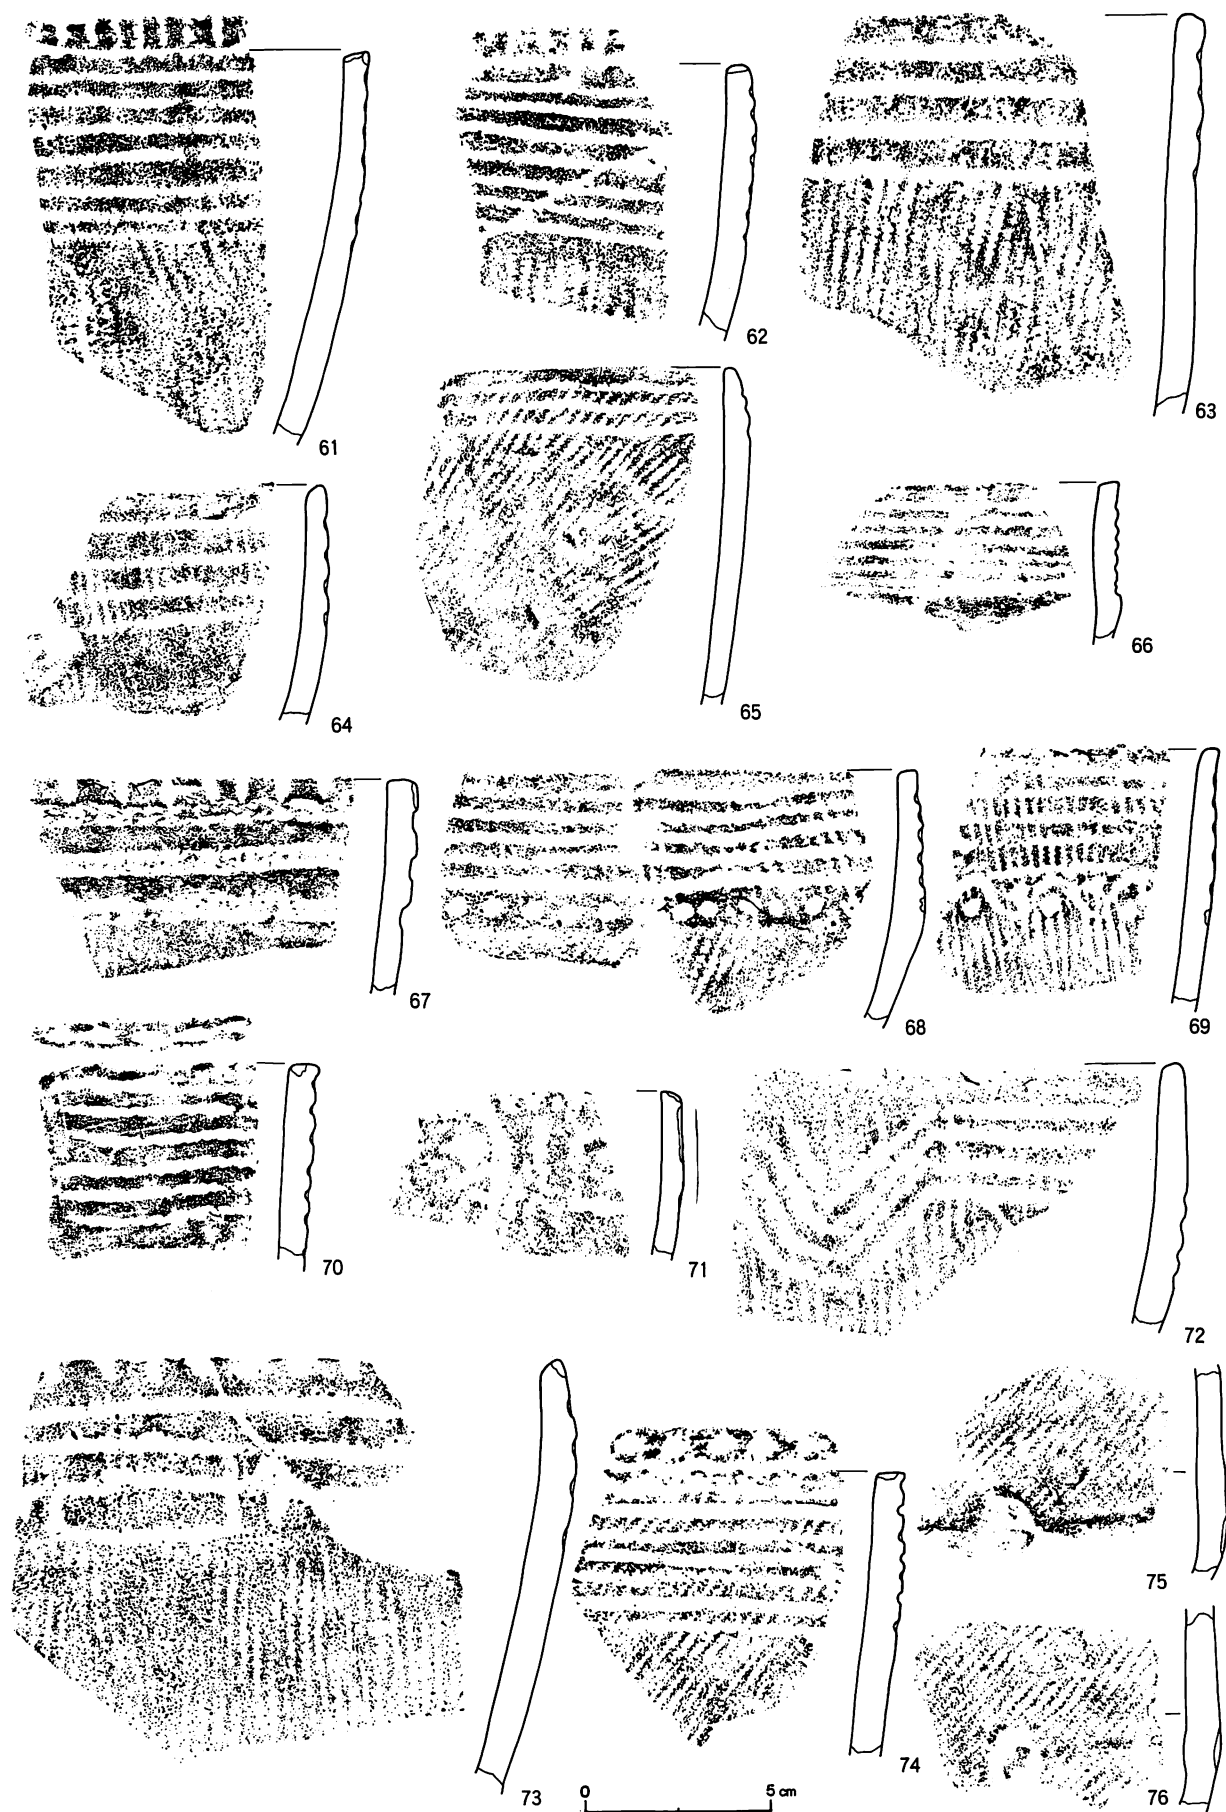 61
62
63
64
65
66
67
68
69
70
71
72
73
74
75
76
0 5 cm